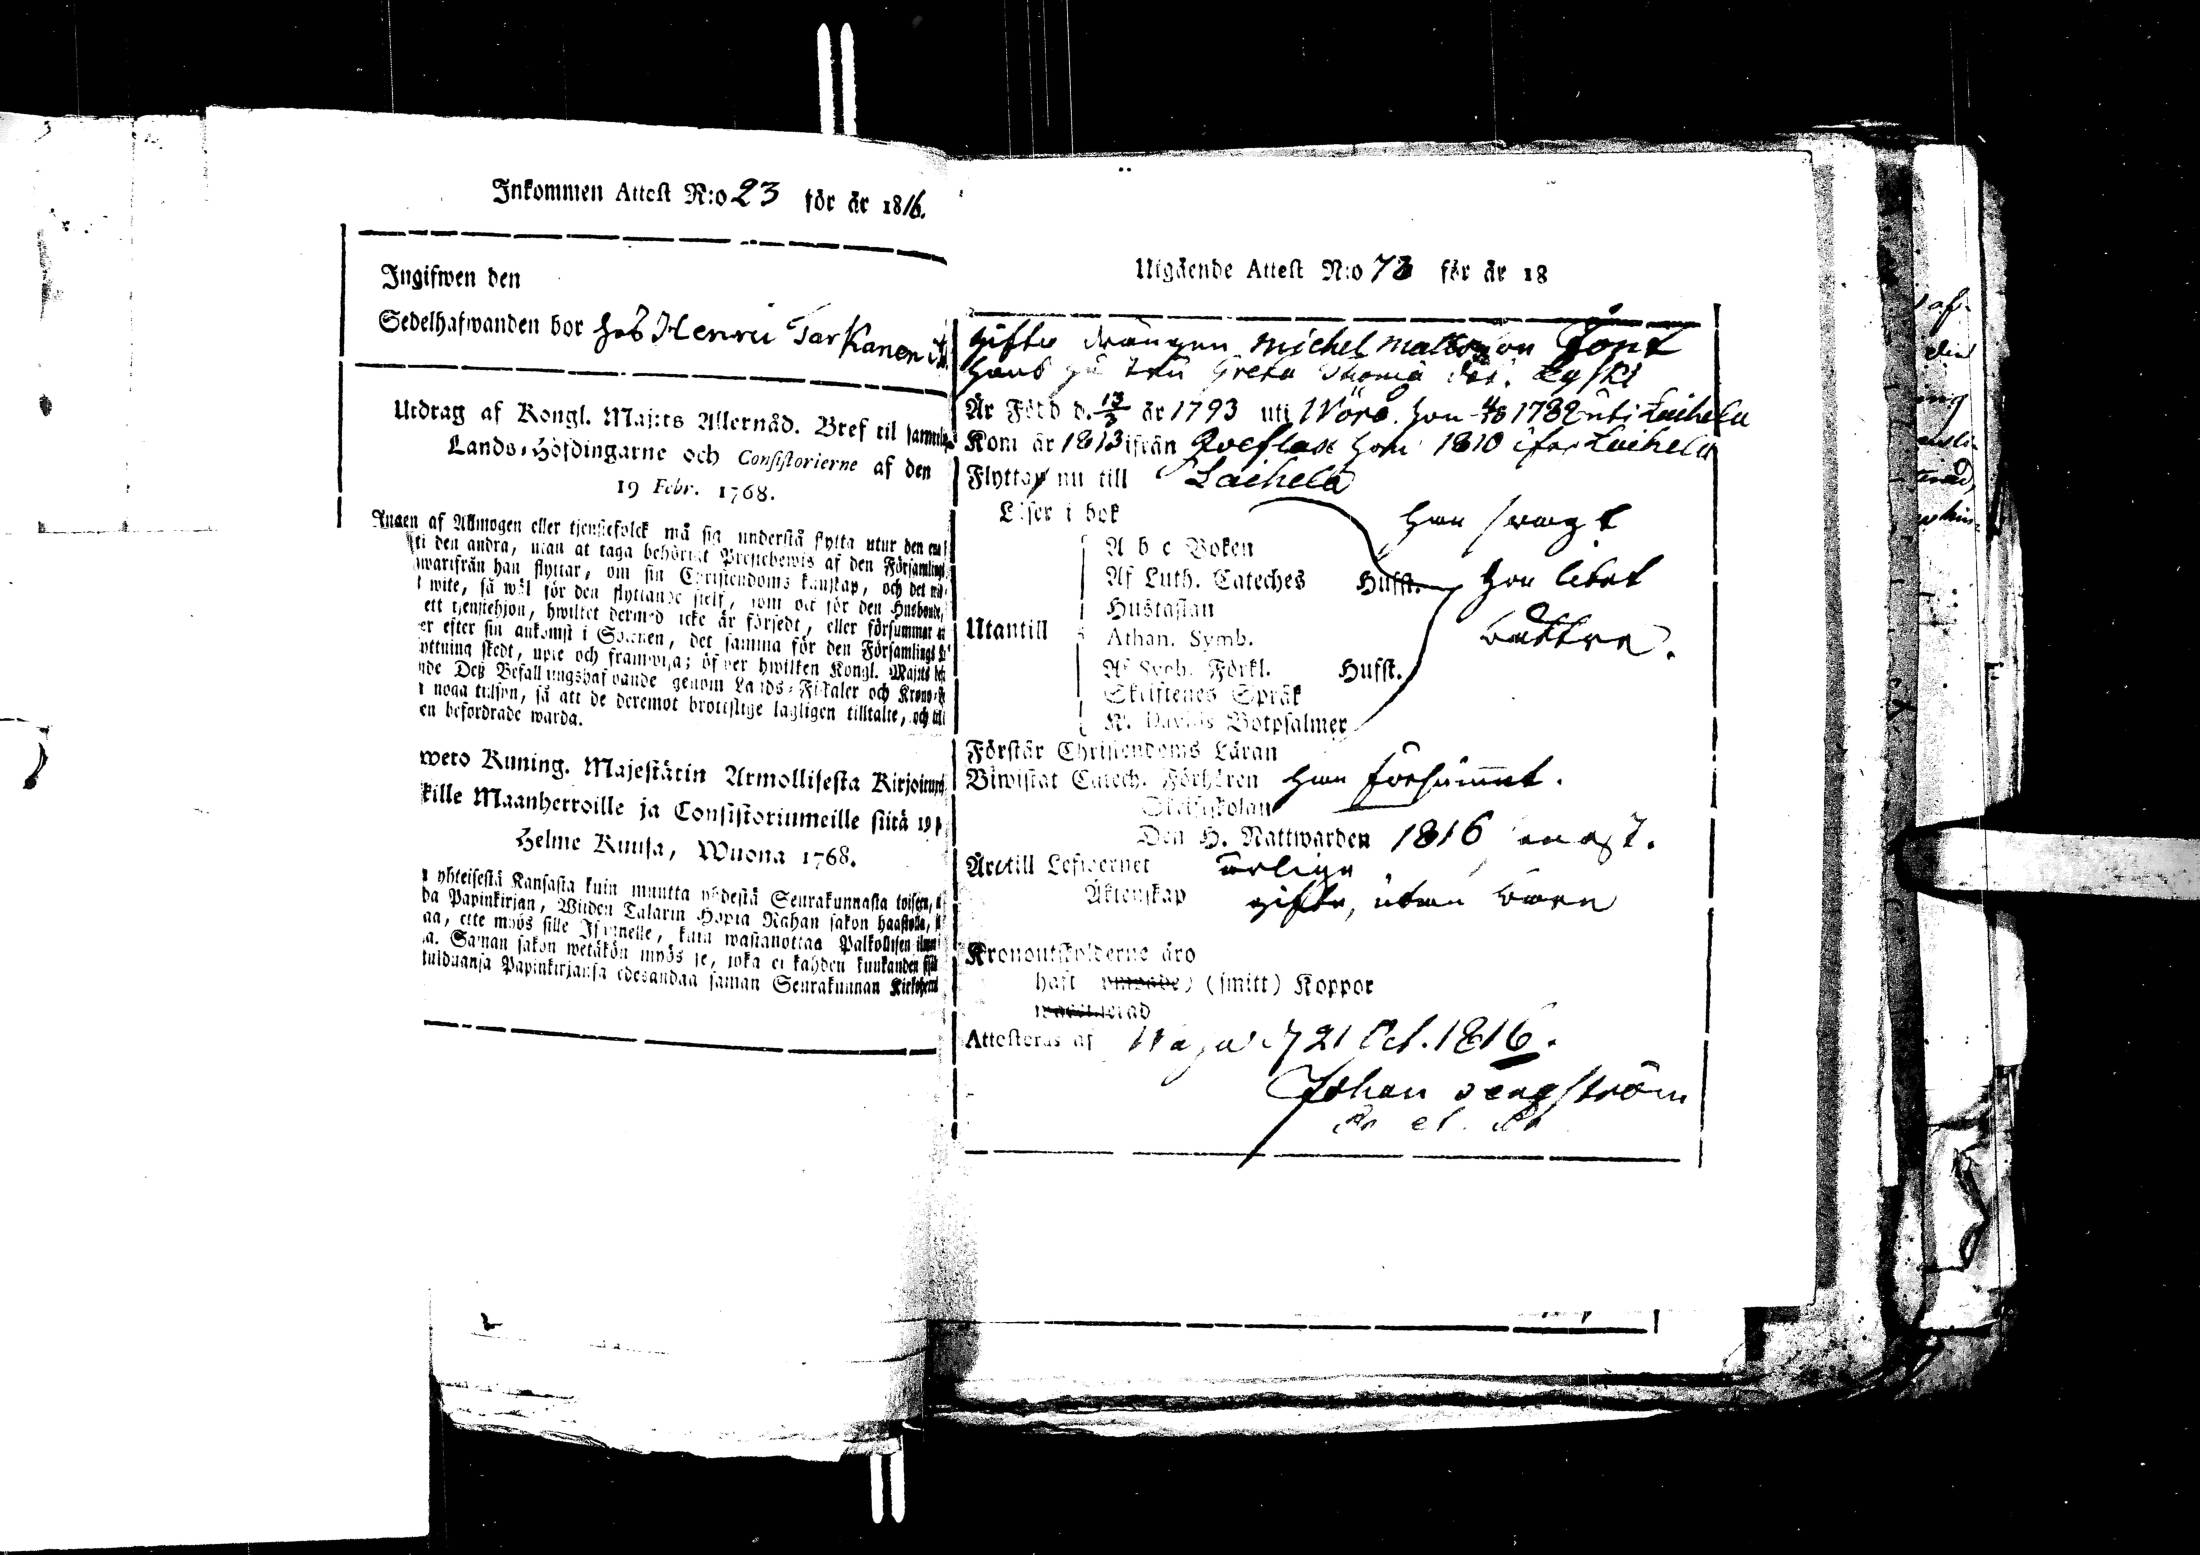 Inkommen Attest N:o 23 för år 1816.
Ingifwen den
Sedelhafwanden bor hos Henric Tarkanen
Utdrag af Kongl. Maj:ts Allernåd. Bref til samtelige
Lands-Höfdingarne och Consistorierne af den
19 Febr. 1768.
Ingen af Allmogen eller tjenstefolck må sig understå flytta utur den ena
ti den andra, utan at taga behörigt Prestebewis af den Församling
warifrån han flyttar, om sin Christendoms kunskap, och det wid
t wite, så wäl för den flyttande sielf, som ock för den Husbonde,
ett tjenstehjon, hwilket dermed icke är försedt, eller försummar at
er efter sin ankomst i Socknen, det samma för den Församlings
yttning skedt, upte och framwisa; öfwer hwilken Kongl. Maj:ts
nde Deß Befallningshafwande genom Lands-Fiskaler och Krono-
noga tilsyn, så att de deremot brottslige lagligen tilltalte, och til
en befordrade warda.
wero Kuning. Majestätin Armollisesta Kirjoituxesta
kille Maanherroille ja Consistoriumeille siitä 19 p.
Helme Kuusa, Wuona 1768.
yhteisestä Kansasta kuin muutta yhdestä Seurakunnasta toiseen,
da Papinkirjan, Wiiden Talarin Hopia Rahan sakon haastolla,
aa, ette myös sille Isännelle, kuin wastanottaa Palkollisen ilman
a. Saman sakon wetäkön myös se, joka ei kahden kuukauden sisäl
tuiduansa Papinkirjansa edesandaa saman Seurakunnan Kirkoherr
Utgående Attest N:o 73 för år 18
gifte drängen Michel Mattsson Tönt
hans hu tru Greta Thomæ dot. Lyski
Är Född d. 13/3 år 1793 uti Wörå. hon 1789 uti Laihela
Kom år 1813 ifrån Qveflax hon 1810 ifrån Laihela
Flyttar nu till Laihela
Läser i bok han svagt
A b c Boken
Af Luth. Cateches Husst. hon litet
Hustaflan
Utantill Athan. Symb. bättre.
Af Sveb. Förkl. Husst.
Skriftenes Språk
K. Davids Botpsalmer
Förstår Christendoms Läran
Biwistat Catech. Förhören han försummat.
Skriftskolan
Den H. Nattwarden 1816
Äro till Lefwernet ärlige
Äktenskap gifte, utan barn
Kronoutskylderne äro
haft (smitt) Koppor
waccinerad
Attesteras af Wasa d 21 Oct. 1816.
Johan Bergström